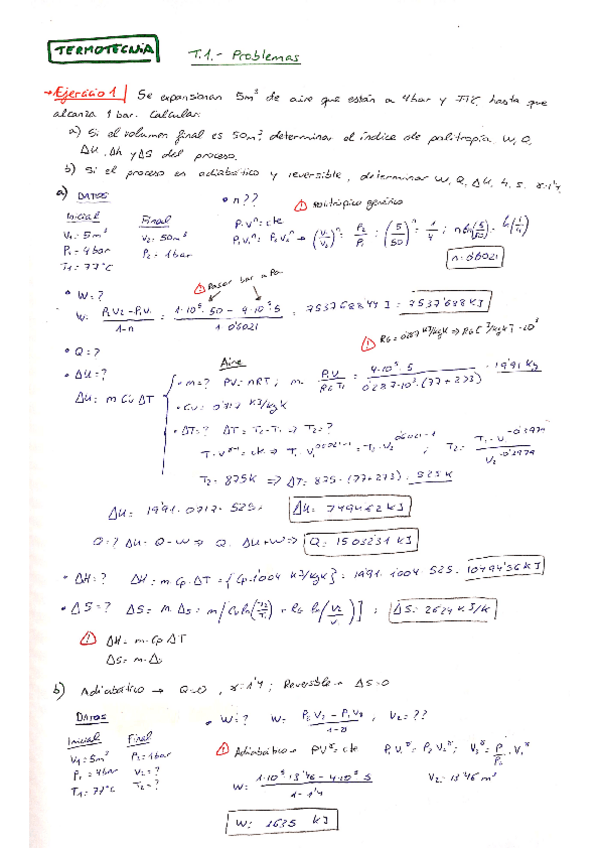 TERMOTECNIA
T.1.- Problemas
→Ejercicio 1 Se expansionan 5m³ de aire que están a 4bar y 77°C hasta que
alcanza 1 bar. Calcular:
a) Si el volumen final es 50m³ determinar el índice de politropía W, Q,
ΔU, Δh y ΔS del proceso.
b) Si el proceso es adiabático y reversible, determinar W, Q, ΔU, h, s. γ=1'4
a) DATOS
Inicial Final
V₁=5m³ V₂=50m³
P₁=4bar P₂=1bar
T₁=77°C
• n??
Politrópico genérico
P·Vⁿ=cte
P₁V₁ⁿ=P₂V₂ⁿ → (V₁/V₂)ⁿ = P₂/P₁ = (5/50)ⁿ = 1/4 ; n ln(5/50) = ln(1/4)
n=0'6021
• W=?
Pasar bar a Pa
W= (P₂V₂-P₁V₁)/(1-n) = (1·10⁵·50-4·10⁵·5)/(1-0'6021) = 7537688'44 J = 7537'688 KJ
• Q=?
Rg=0'287 KJ/KgK ⇒ Rg [J/KgK] ·10³
• ΔU=?
ΔU= m Cv ΔT
Aire
• m=? PV=nRT ; m= P₁V/RgT₁ = (4·10⁵·5)/(0'287·10³·(77+273)) = 19'91 Kg
• Cv= 0'717 KJ/KgK
• ΔT=? ΔT=T₂-T₁ → T₂=?
T·Vⁿ⁻¹=cte → T₁·V₁^0'6021-1 = T₂·V₂^0'6021-1 ; T₂= (T₁·V₁^-0'3979)/(V₂^-0'3979)
T₂=875K ⇒ ΔT= 875-(77+273)= 525K
ΔU= 19'91·0'717·525= ΔU= 7494'62 KJ
Q=? ΔU=Q-W ⇒ Q=ΔU+W ⇒ Q= 15032'31 KJ
• ΔH=? ΔH=m·Cp·ΔT={Cp=1'004 KJ/KgK}=19'91·1'004·525= 10494'56 KJ
• ΔS=? ΔS= m·Δs= m[Cv ln(T₂/T₁)+Rg ln(V₂/V₁)] = ΔS= 26'24 KJ/K
ΔH=m·Cp ΔT
ΔS=m·Δs
b) Adiabático → Q=0 , γ=1'4 ; Reversible → ΔS=0
DATOS
Inicial Final
V₁=5m³ P₂=1bar
P₁=4bar V₂=?
T₁=77°C T₂=?
• W=? W= (P₂V₂-P₁V₁)/(1-γ) ; V₂=??
Adiabático → PVᵞ=cte P₁V₁ᵞ=P₂V₂ᵞ ; V₂ᵞ= P₁/P₂·V₁ᵞ
W= (1·10⁵·13'46-4·10⁵·5)/(1-1'4) V₂=13'46 m³
W= 1635 KJ